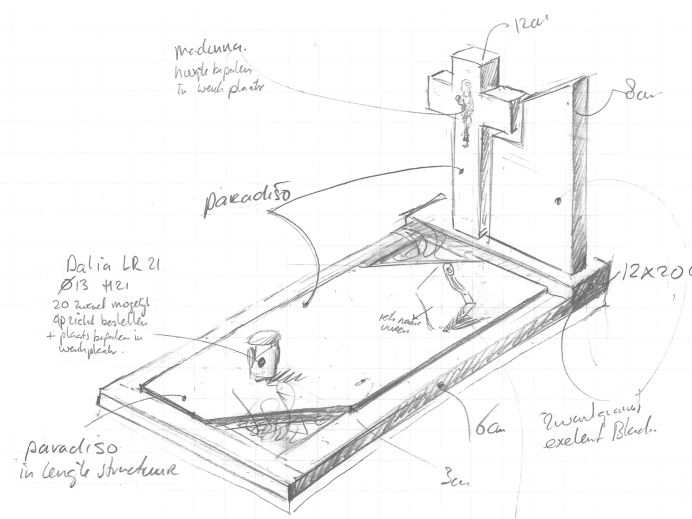 12cm
madonna.
hoogte bepalen
in werkplaats
8cm
paradiso
Dalia LR 21
Ø13 H21
20 zwart mogelijk
op zicht bestellen
+ plaats bepalen in
werkplaats.
12x20
6cm
3cm
Zwart graniet
exelent Black.
paradiso
in lengte structuur